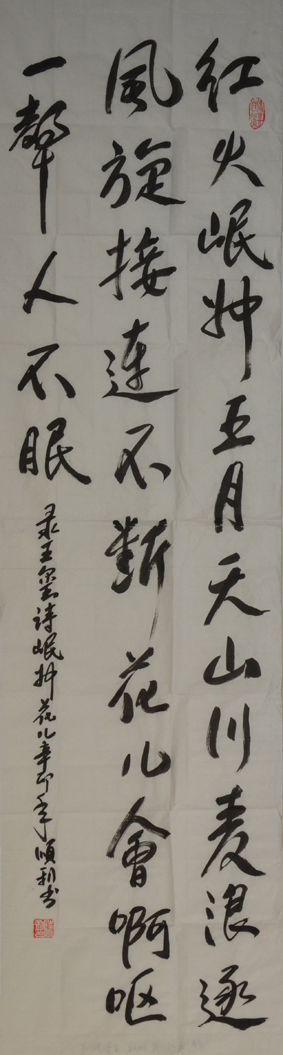 红火岷州五月天山川麦浪逐
风旋接连不断花儿会啊呕
一声人不眠
录王玺诗岷州花儿辛卯年顺利书